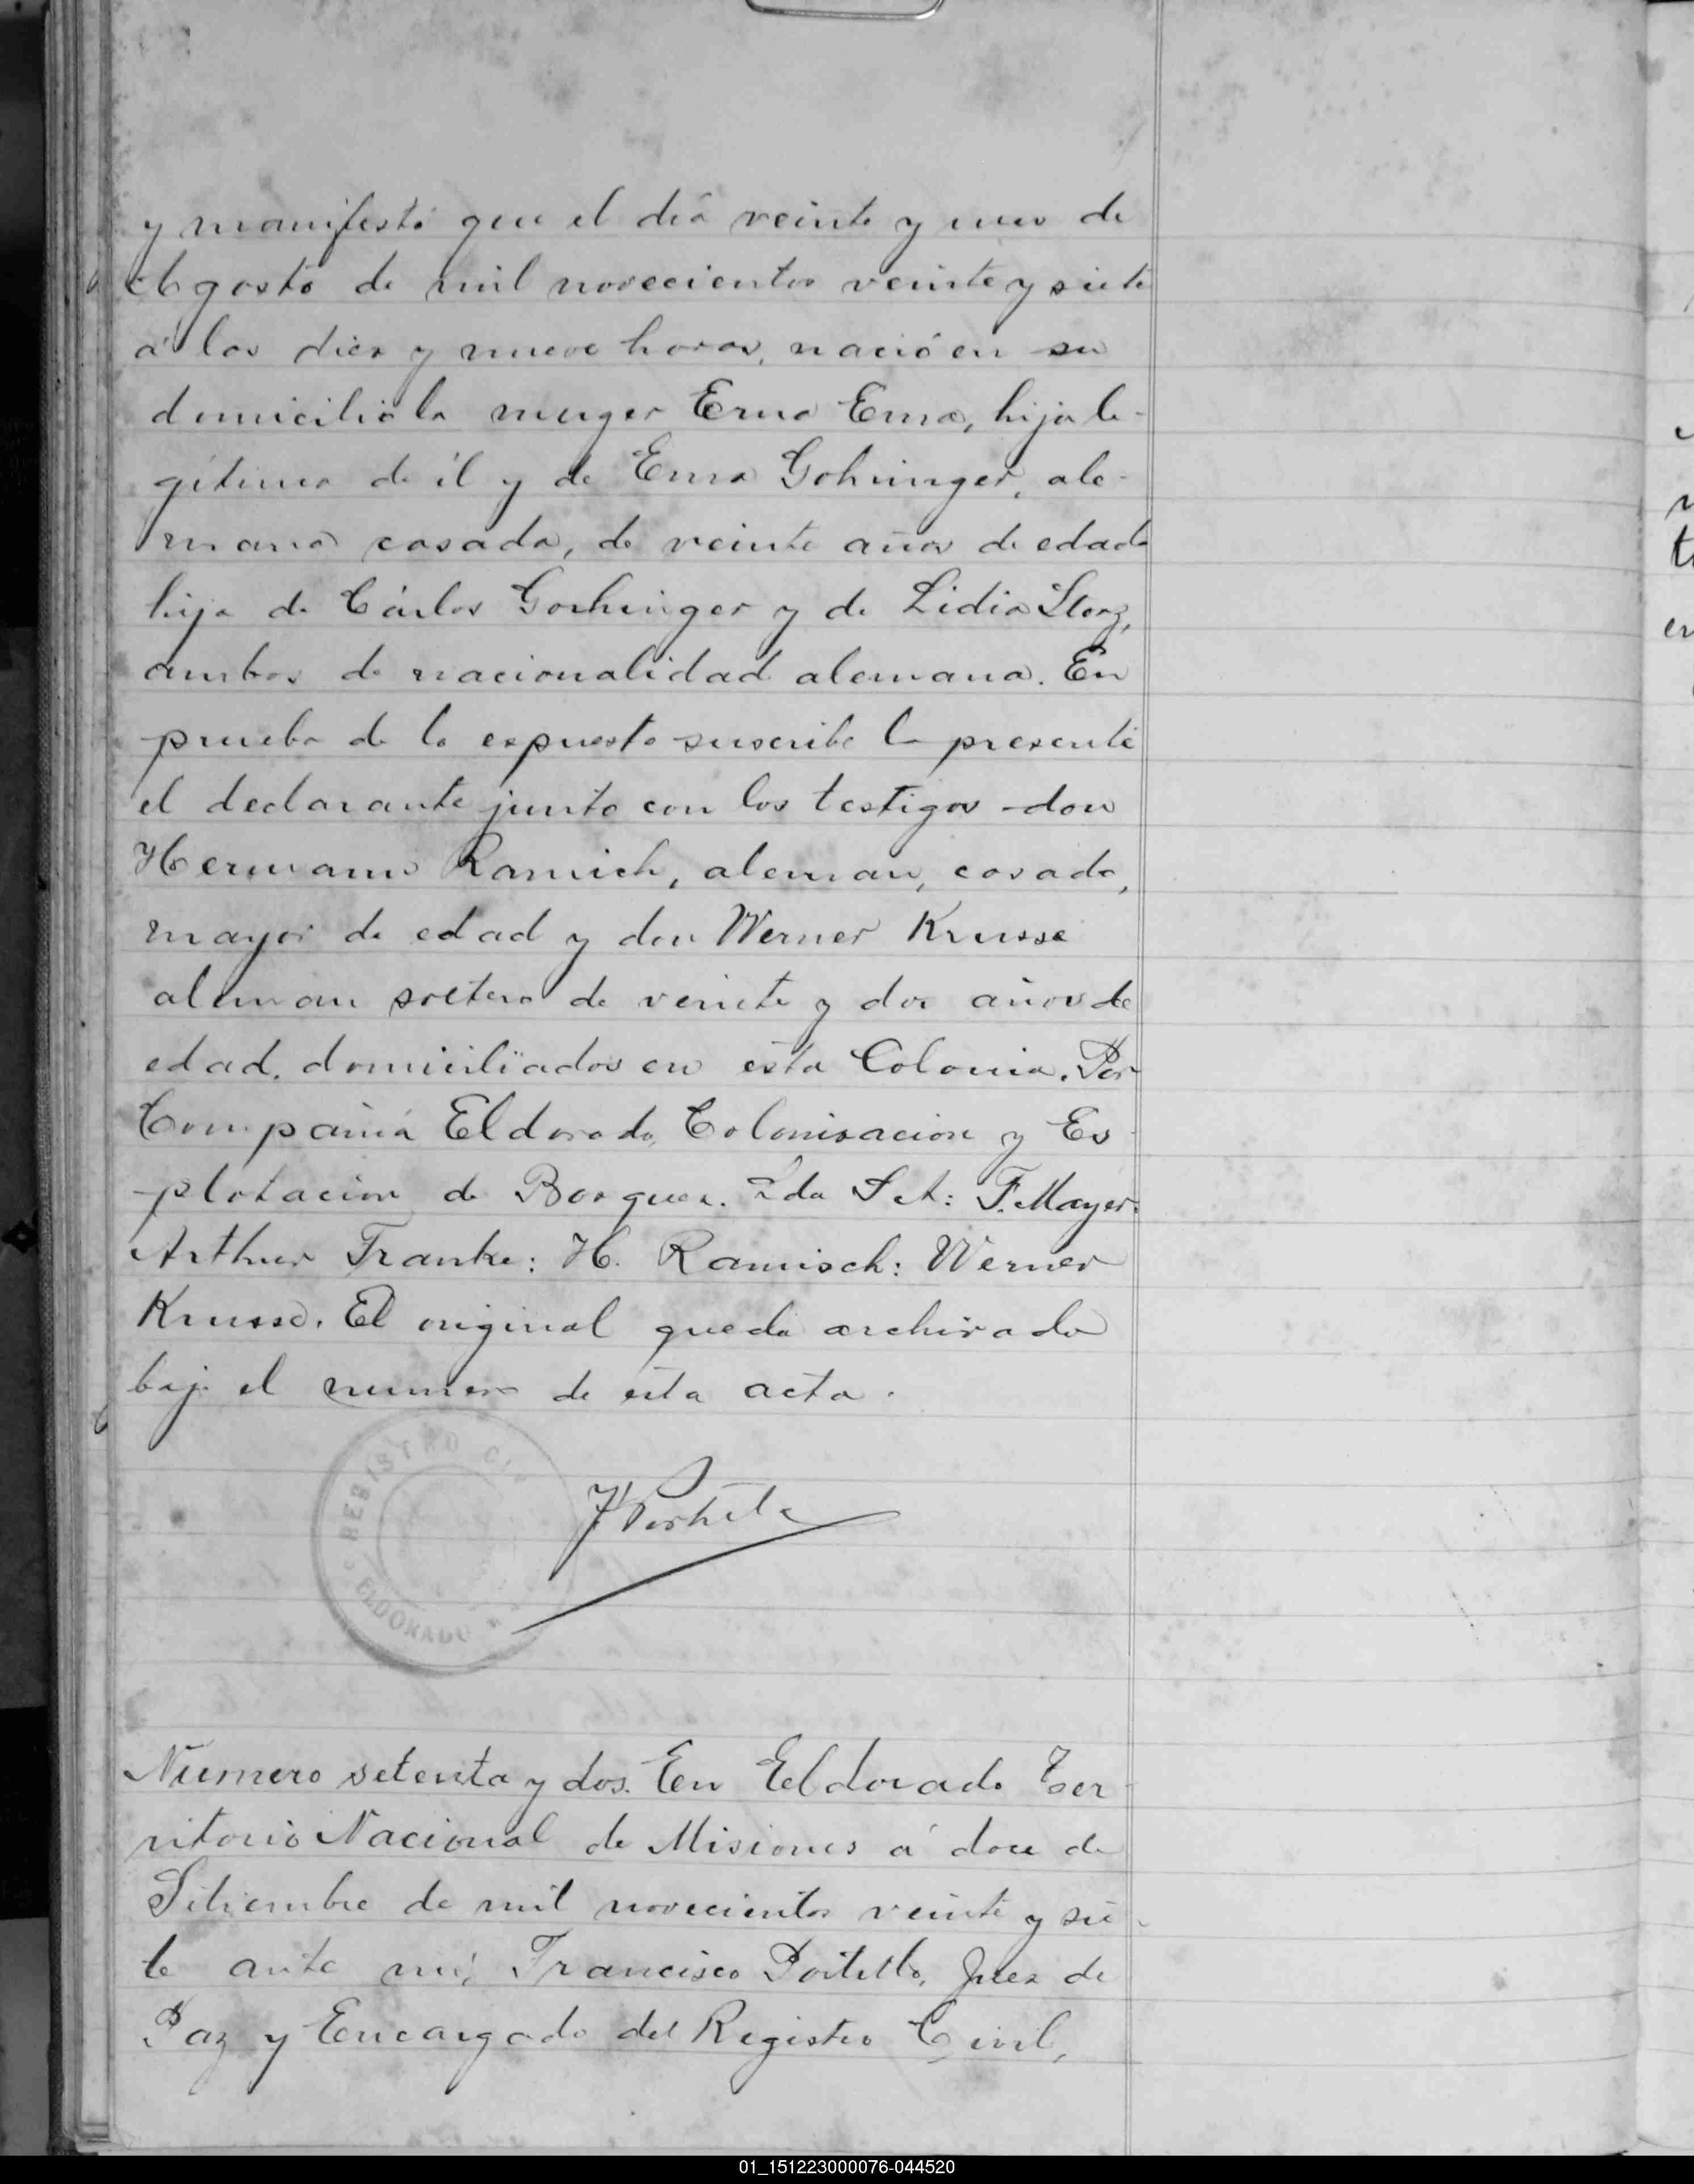 y manifestó que el día veinte y uno de
Agosto de mil novecientos veinte y siete
á las diez y nueve horas, nació en su
domicilio la muger Erna Ema, hija le-
gítima de él y de Ema Gohringer, ale-
mana casada, de veinte años de edad
hija de Cárlos Gorhinger y de Lidia Storz,
ambos de nacionalidad alemana. En
prueba de lo espuesto suscribe la presente
el declarante junto con los testigos don
Hermann Ramich, aleman, casado,
mayor de edad y don Werner Krusse
aleman soltero de veinte y dos años de
edad, domiciliados en esta Colonia. Por
Compañia Eldorado, Colonisacion y Es-
plotacion de Bosques. Lda S A: F. Mayer:
Arthur Franke: H. Ramisch: Werner
Krusse. El original queda archivado
bajo el numero de esta acta.
REGISTRO CI
ELDORADO
Numero setenta y dos. En Eldorado Ter-
ritorio Nacional de Misiones á doce de
Setiembre de mil novecientos veinte y sie-
te ante mi, Francisco Portello, Juez de
Paz y Encargado del Registro Civil,
01_151223000076-044520